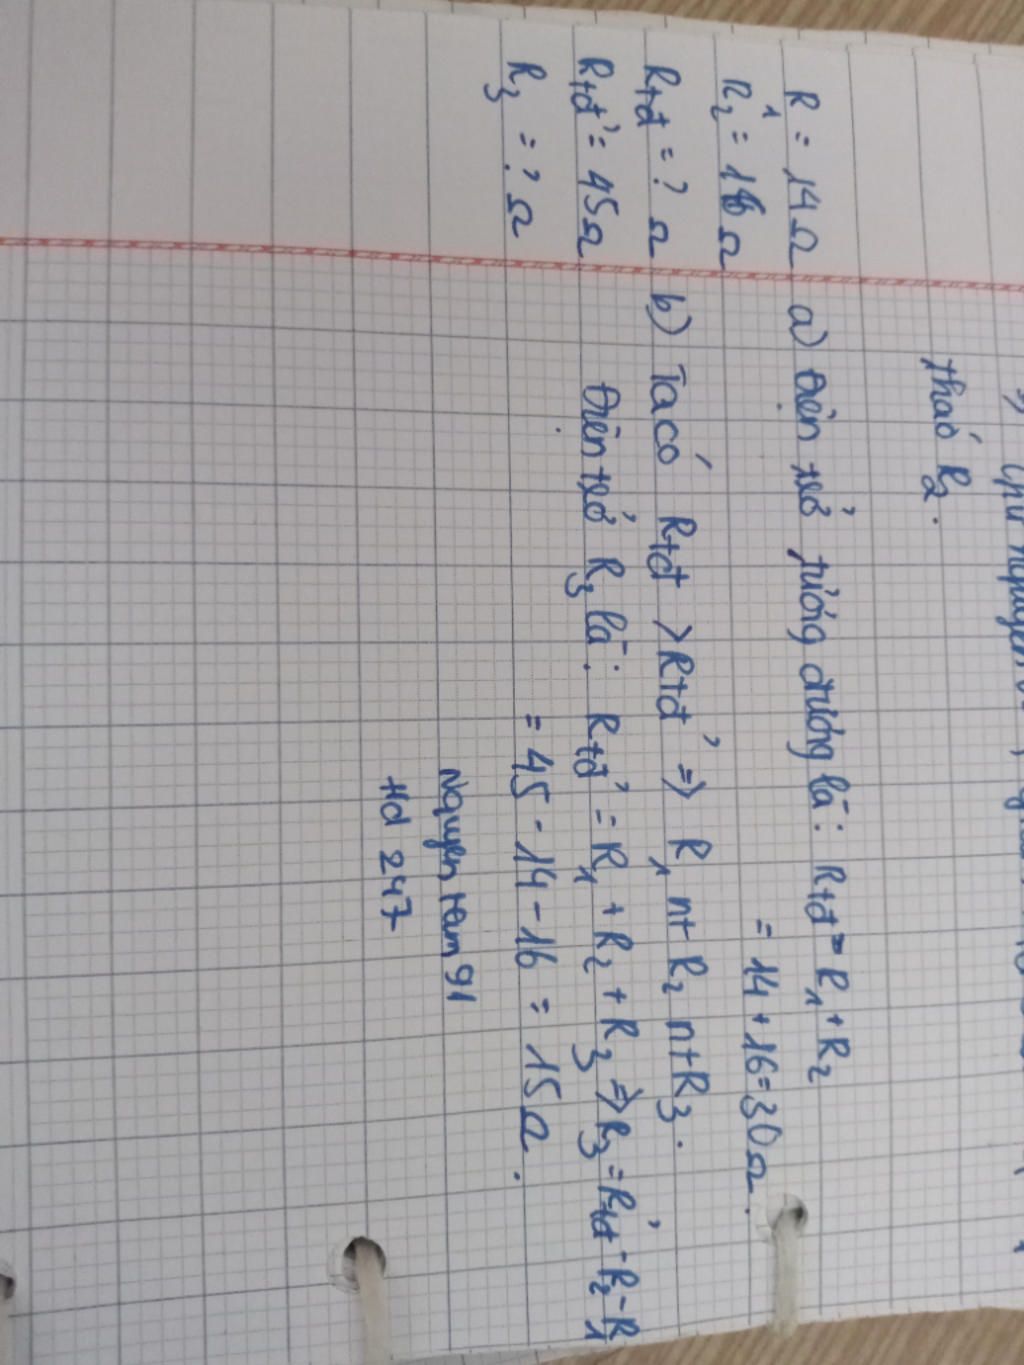 tháo R2.
R1 = 14Ω
R2 = 16Ω
Rtđ = ? Ω
Rtđ' = 45Ω
R3 = ? Ω
a) Điện trở tương đương là: Rtđ = R1 + R2
= 14 + 16 = 30Ω.
b) Ta có Rtđ > Rtđ' => R1 nt R2 nt R3.
Điện trở R3 là: Rtđ' = R1 + R2 + R3 => R3 = Rtđ' - R2 - R1
= 45 - 14 - 16 = 15Ω.
Nguyen tam 91
Hd 247